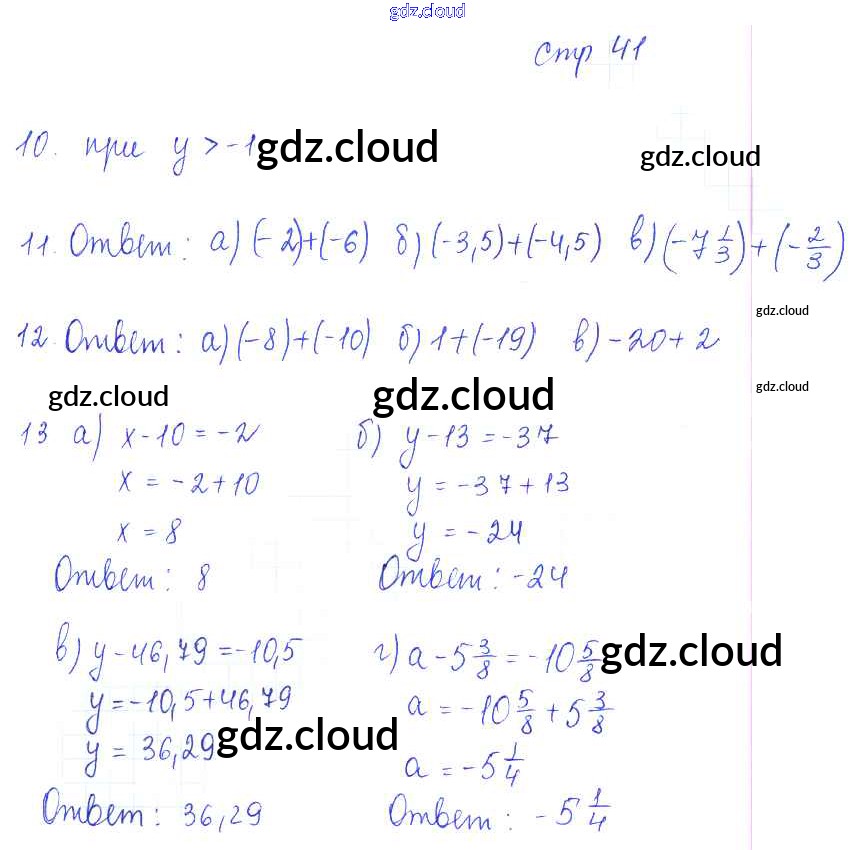 gdz.cloud
стр 41
10. при y > -1 gdz.cloud gdz.cloud
11. Ответ: а) (-2)+(-6) б) (-3,5)+(-4,5) в) (-7 1/3)+(-2/3)
gdz.cloud
12. Ответ: а) (-8)+(-10) б) 1+(-19) в) -20+2
gdz.cloud gdz.cloud gdz.cloud
13 а) x-10=-2 б) y-13=-37
x = -2+10 y = -37+13
x = 8 y = -24
Ответ: 8 Ответ: -24
в) y-46,79=-10,5 г) a-5 3/8=-10 5/8 gdz.cloud
y=-10,5+46,79 a = -10 5/8 + 5 3/8
y = 36,29 gdz.cloud a = -5 1/4
Ответ: 36,29 Ответ: -5 1/4